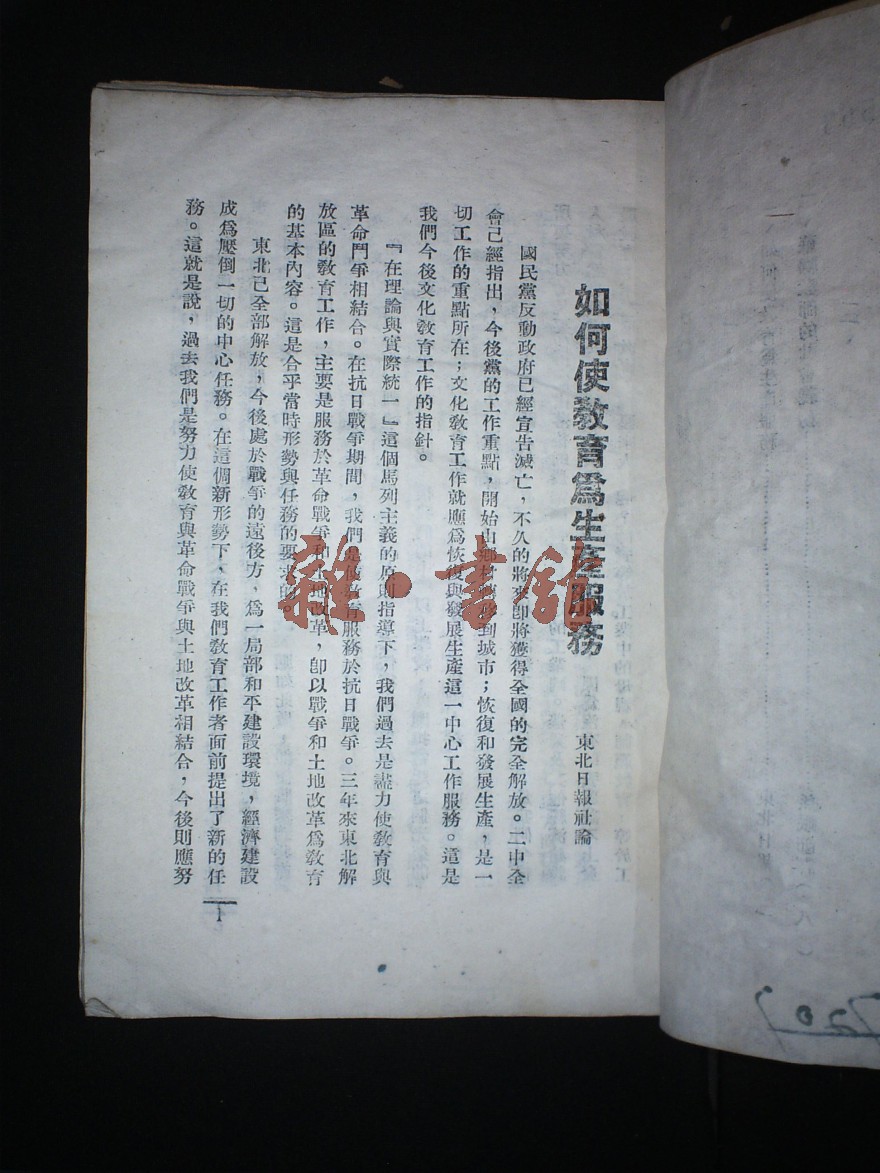 如何使敎育爲生產服務
東北日報社論
國民黨反動政府已經宣告滅亡，不久的將來卽將獲得全國的完全解放。二中全
會已經指出，今後黨的工作重點，開始由鄉村轉移到城市；恢復和發展生產，是一
切工作的重點所在；文化敎育工作就應爲恢復與發展生產這一中心工作服務。這是
我們今後文化敎育工作的指針。
『在理論與實際統一』這個馬列主義的原則指導下，我們過去是盡力使敎育與
革命鬥爭相結合。在抗日戰爭期間，我們是使敎育服務於抗日戰爭。三年來東北解
放區的敎育工作，主要是服務於革命戰爭和土地改革，卽以戰爭和土地改革爲敎育
的基本內容。這是合乎當時形勢與任務的要求的。
東北已全部解放，今後處於戰爭的遠後方，爲一局部和平建設環境，經濟建設
成爲壓倒一切的中心任務。在這個新形勢下，在我們敎育工作者面前提出了新的任
務。這就是說，過去我們是努力使敎育與革命戰爭與土地改革相結合，今後則應努
1
雜·書館